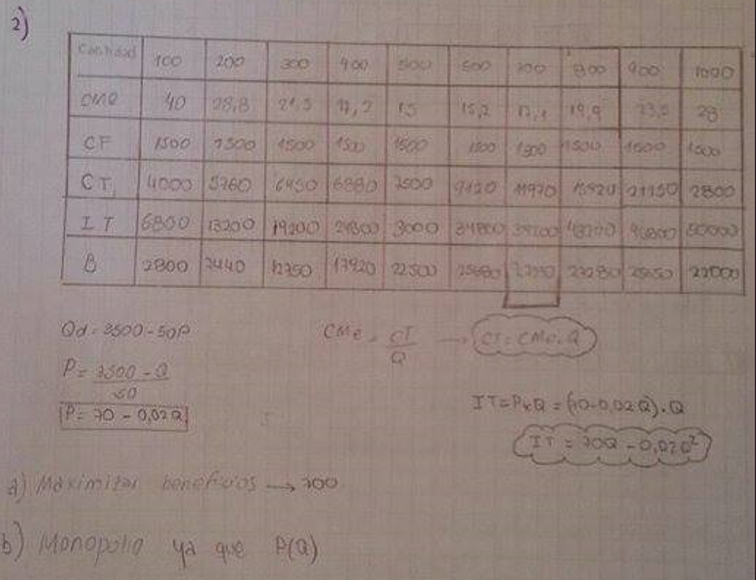 2)
Cantidad 100 200 300 400 500 600 700 800 900 1000
CMe 40 28,8 21,5 17,2 15 15,2 17,1 19,9 23,5 28
CF 1500 1500 1500 1500 1500 1500 1500 1500 1500 1500
CT 4000 5760 6450 6880 7500 9120 11970 15920 21150 2800
IT 6800 13200 19200 24800 3000 34800 39200 43200 46800 50000
B 2800 7440 12750 17920 22500 25680 27230 27280 25650 22000
Qd = 3500 - 50P
CMe = CT/Q → CT = CMe·Q
P = 3500 - Q
50
P = 70 - 0,02Q
IT = P×Q = (70-0,02Q)·Q
IT = 70Q - 0,02Q²
a) Maximizar beneficios → 700
b) Monopolio ya que P(Q)